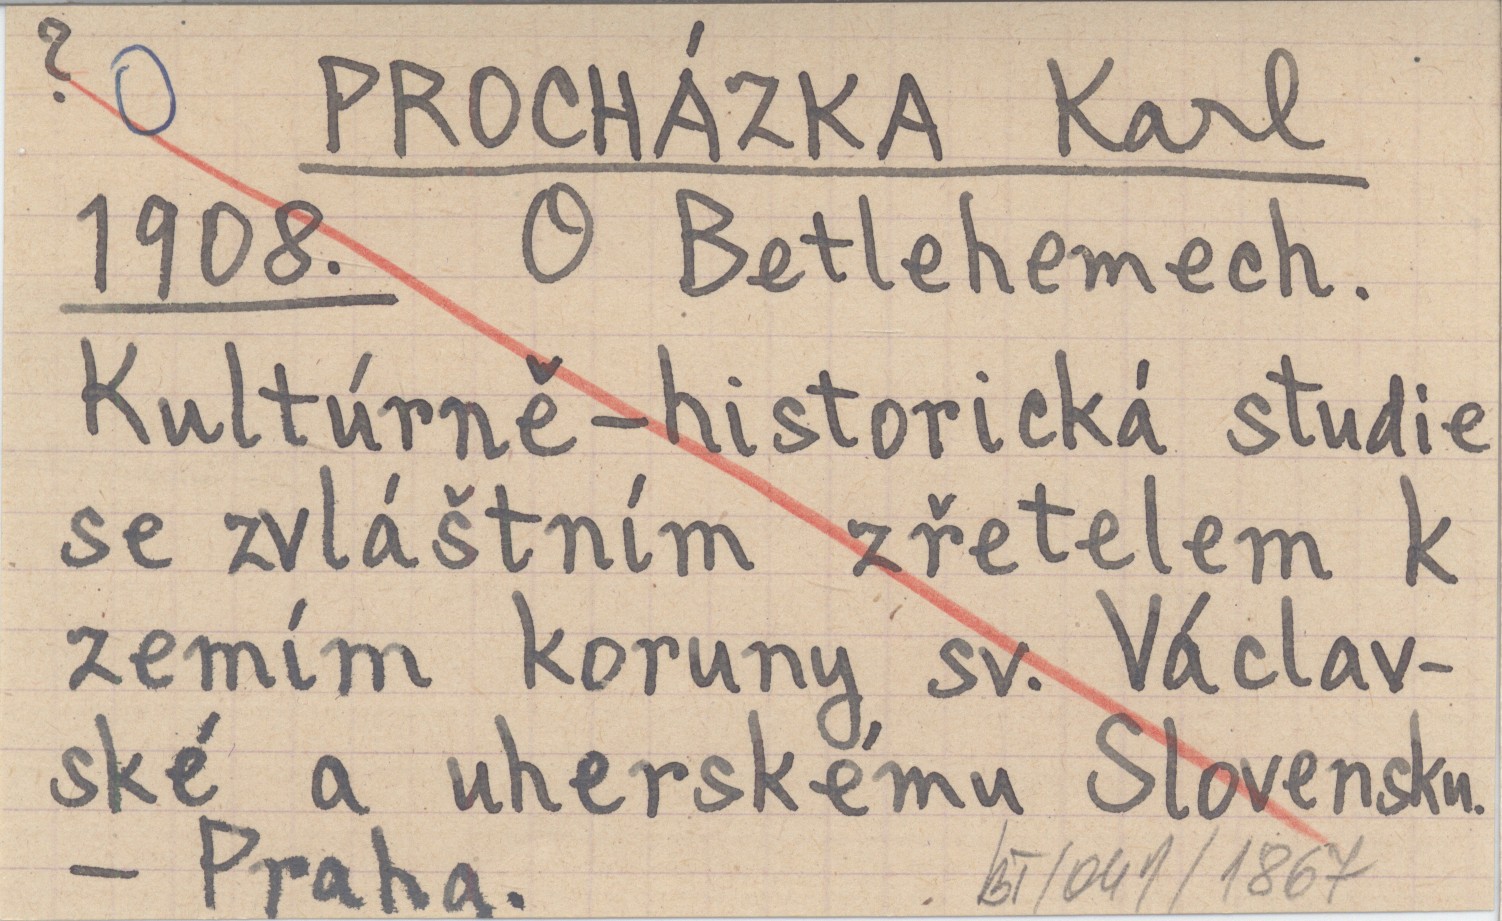 ? O PROCHÁZKA Karl
1908. O Betlehemech.
Kultúrně-historická studie
se zvláštním zřetelem k
zemím koruny sv. Václav-
ské a uherskému Slovensku.
- Praha.
BT/041/1867